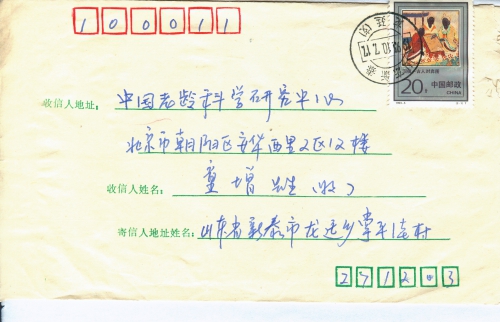 100011
中国邮政
CHINA
20分
收信人地址：中国老龄科学研究中心
北京市朝阳区安华西里2区12楼
收信人姓名：童增先生（收）
寄信人地址姓名：山东省新泰市龙廷乡掌平洼村
271243